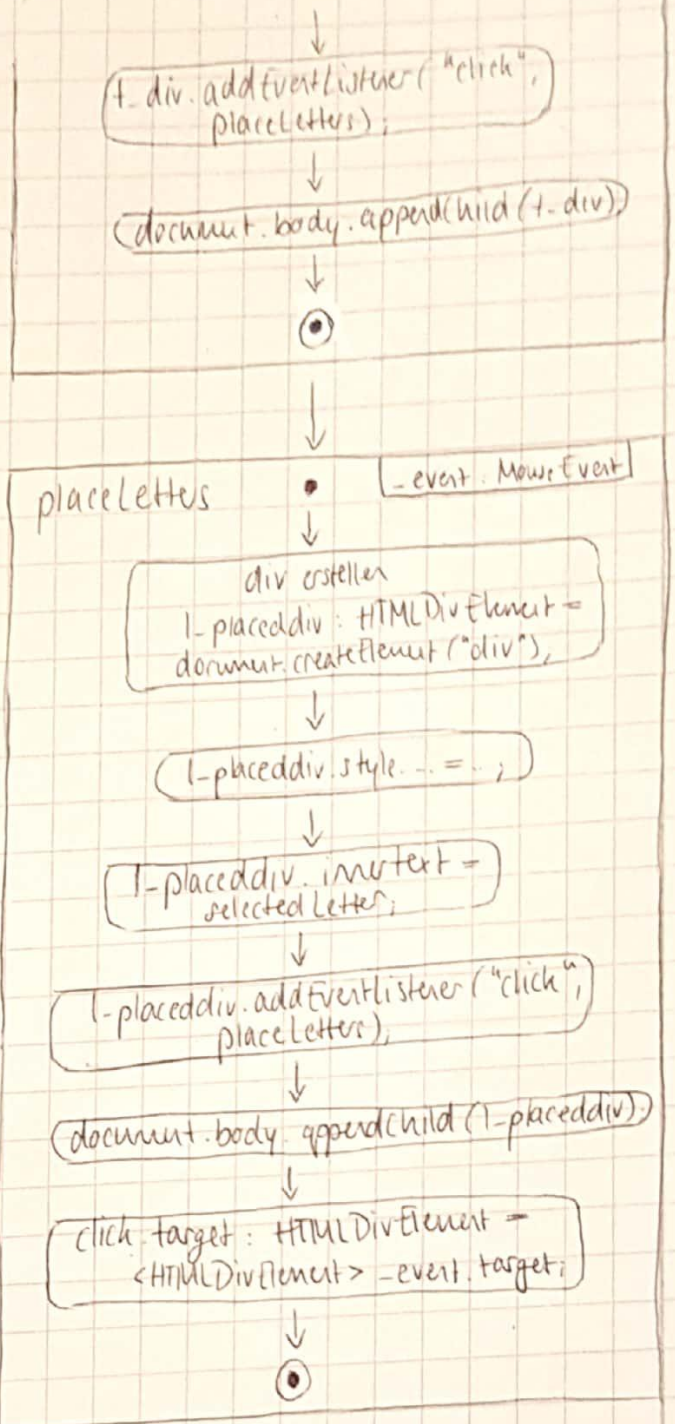 t_div.addEventListener("click",
placeLetters);
document.body.appendChild(t_div);
placeLetters
_event: MouseEvent
div erstellen
l_placeddiv: HTMLDivElement =
document.createElement("div");
l_placeddiv.style... = ..;
l_placeddiv.innertext =
selectedLetter;
l_placeddiv.addEventListener("click",
placeLetters);
document.body.appendChild(l_placeddiv);
click target: HTMLDivElement =
<HTMLDivElement> _event.target;